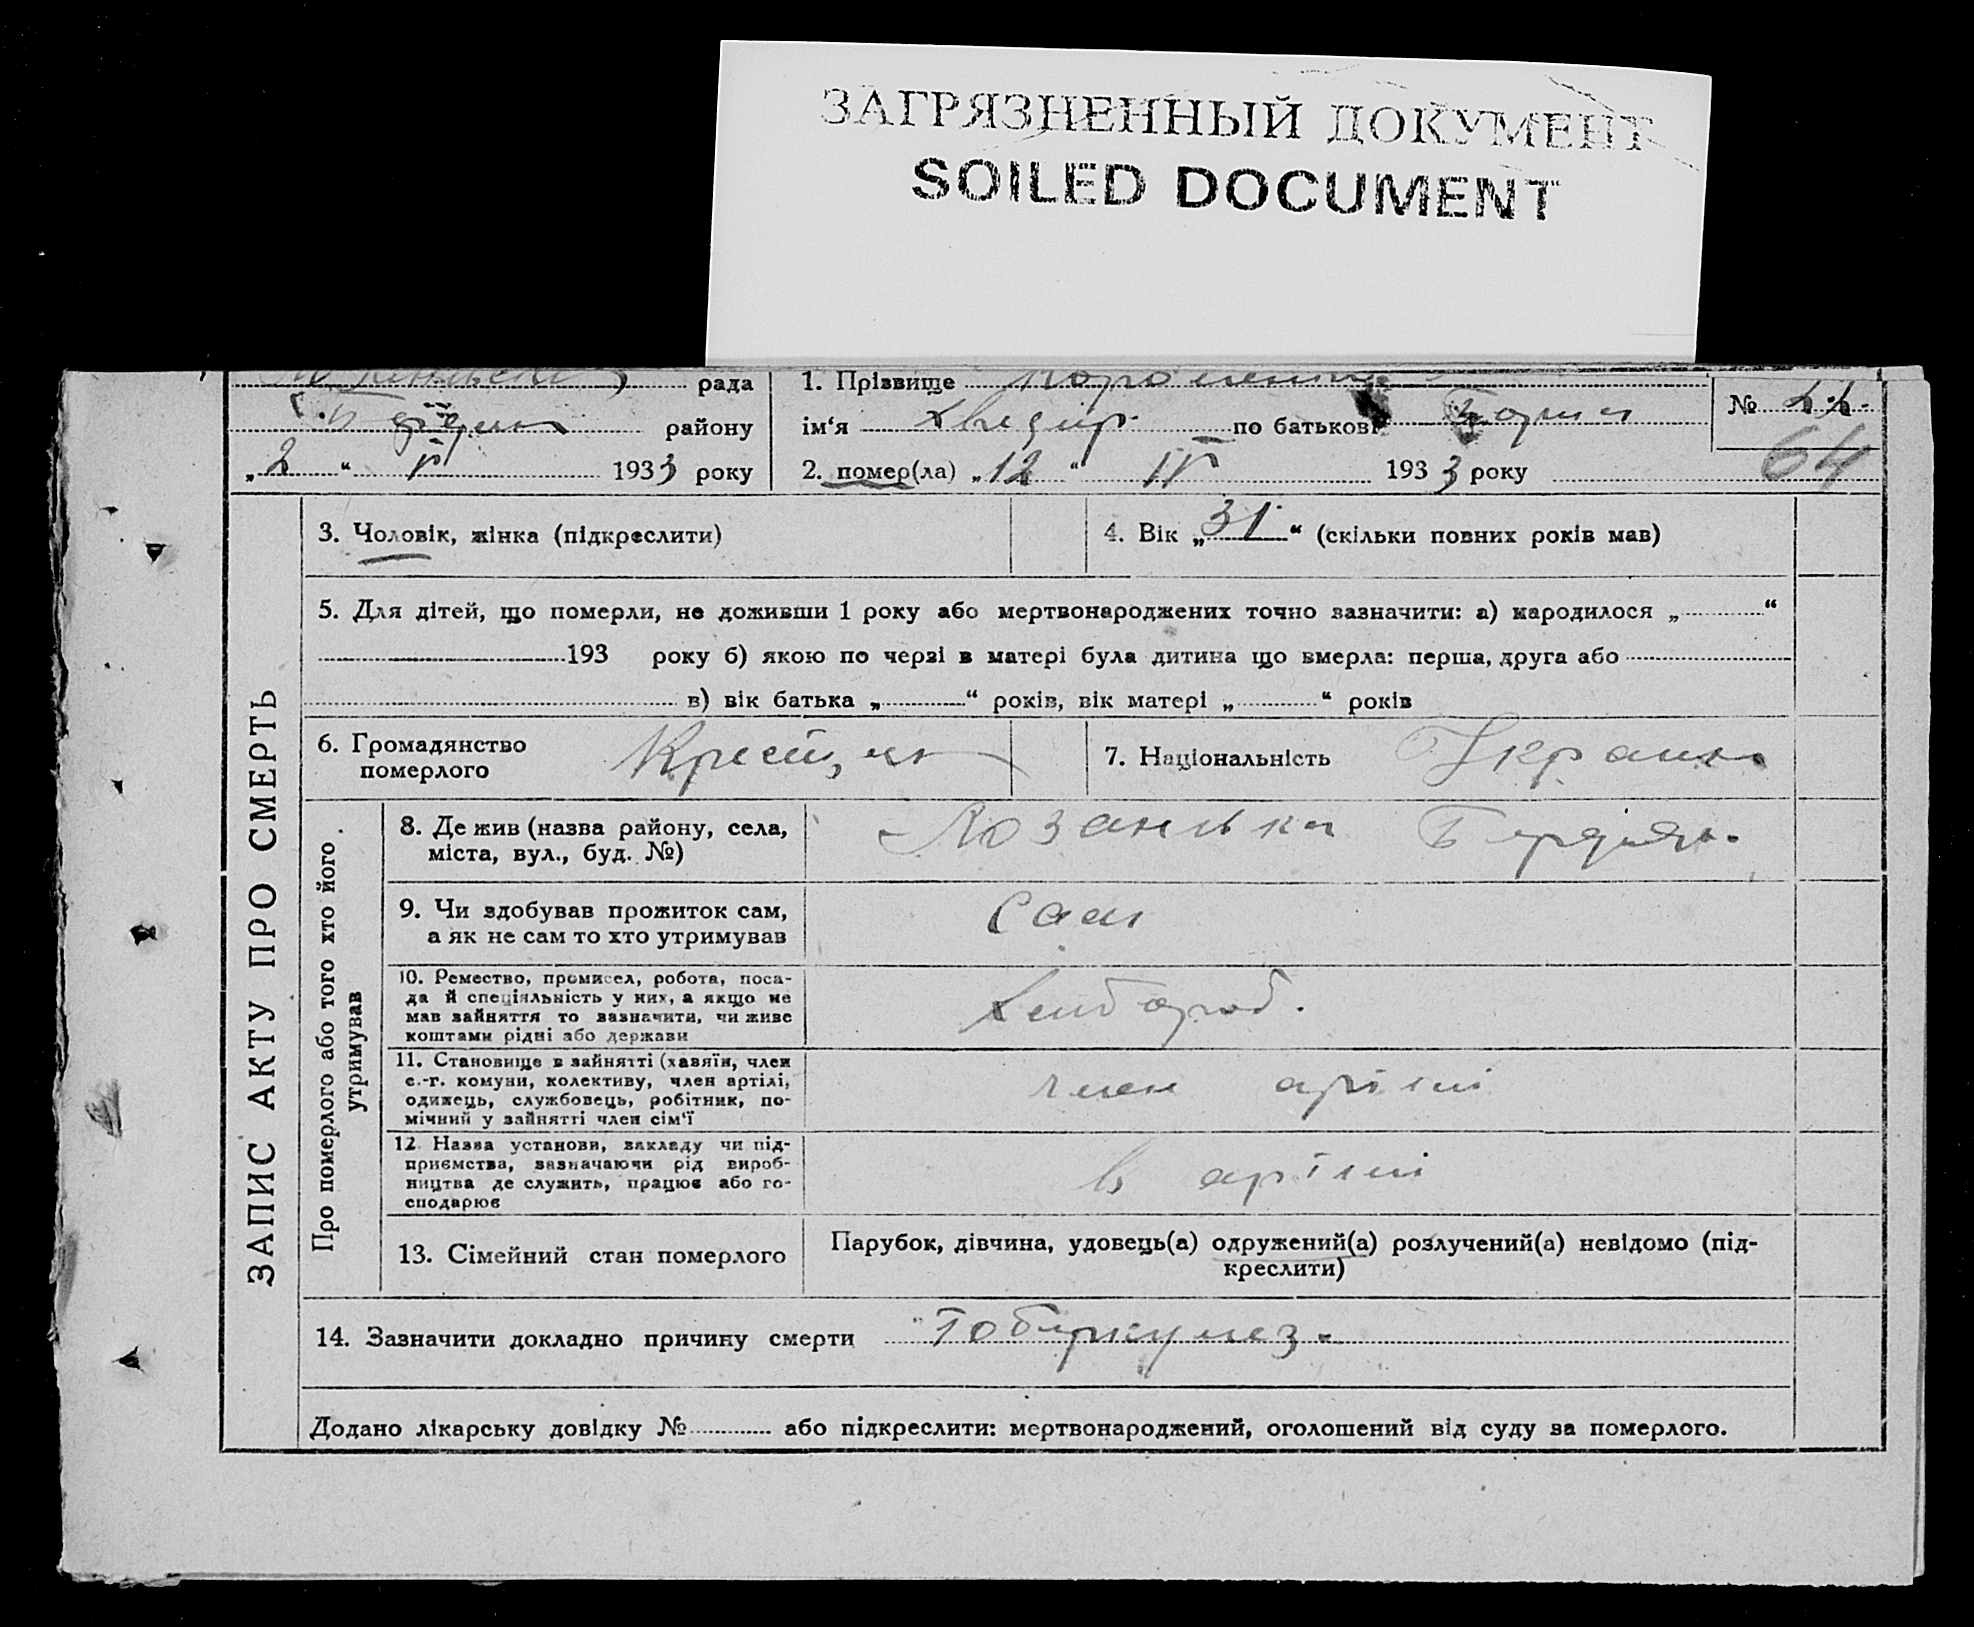 ЗАГРЯЗНЕННЫЙ ДОКУМЕНТ
SOILED DOCUMENT
рада
району
„2“ V 1933 року
1. Прізвище
ім‘я по батькові
2. помер(ла) „12“ IV 1933 року
№ 22.
64
ЗАПИС АКТУ ПРО СМЕРТЬ
3. Чоловік, жінка (підкреслити)
4. Вік „31“ (скільки повних років мав)
5. Для дітей, що померли, не доживши 1 року або мертвонароджених точно зазначити: а) народилося „ “
193 року б) якою по черзі в матері була дитина що вмерла: перша, друга або
в) вік батька „ “ років, вік матері „ “ років
6. Громадянство
померлого
7. Національність
Про померлого або того хто його
утримував
8. Де жив (назва району, села,
міста, вул., буд. №)
9. Чи здобував прожиток сам,
а як не сам то хто утримував
Сам
10. Ремество, промисел, робота, поса-
да й спеціяльність у них, а якщо не
мав зайняття то зазначити, чи живе
коштами рідні або держави
Хлібороб.
11. Становище в зайнятті (хазяїн, член
с.-г. комуни, колективу, член артілі,
одинець, службовець, робітник, по-
мічний у зайнятті член сім‘ї
член артілі
12. Назва установи, закладу чи під-
приємства, зазначаючи рід вироб-
ництва де служить, працює або го-
сподарює
в артілі
13. Сімейний стан померлого
Парубок, дівчина, удовець(а) одружений(а) розлучений(а) невідомо (під-
креслити)
14. Зазначити докладно причину смерти
Тобіркульоз.
Додано лікарську довідку № або підкреслити: мертвонароджений, оголошений від суду за померлого.